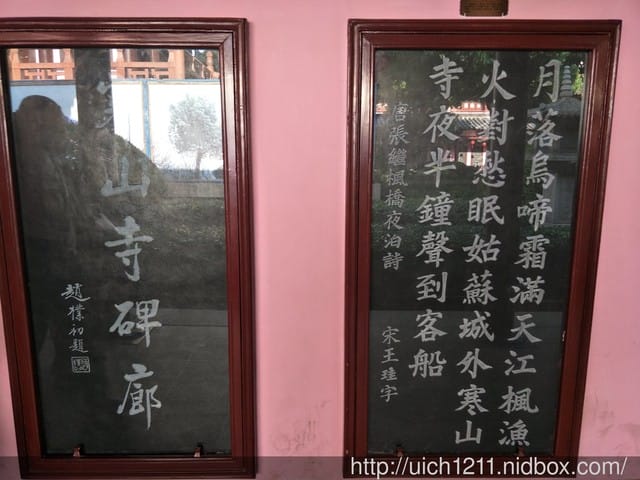 寒山寺碑廊
趙樸初題
月落烏啼霜滿天江楓漁
火對愁眠姑蘇城外寒山
寺夜半鐘聲到客船
唐張繼楓橋夜泊詩
宋王珪字
http://uich1211.nidbox.com/